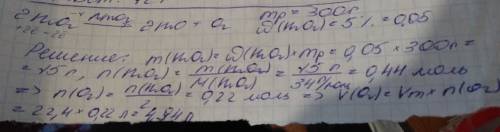 mp = 300г.
ω(H₂O₂) = 5% = 0,05
2H₂O₂ MnO₂ = 2H₂O + O₂
Решение: m(H₂O₂) = ω(H₂O₂) × mp = 0,05 × 300г =
= 15г, n(H₂O₂) = m(H₂O₂) / M(H₂O₂) = 15г / 34г/моль = 0,44 моль
=> n(O₂) = n(H₂O₂) / 2 = 0,22 моль => V(O₂) = Vm × n(O₂)
= 22,4 × 0,22 = 4,94л